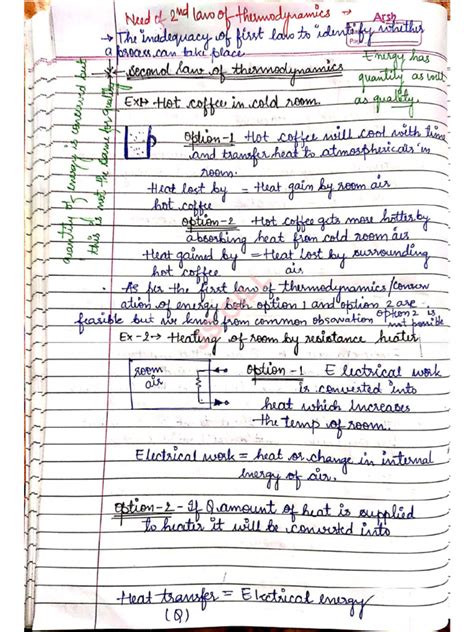 Need of 2nd law of thermodynamics →
Arsh
→ The inadequacy of first law to identify whether
a process can take place.
Energy has
quantity as well
as quality.
← second law of thermodynamics
Ex1→ Hot coffee in cold room.
option-1 Hot coffee will cool with time
and transfer heat to atmospheric air in
room.
Heat lost by = Heat gain by room air
hot coffee
option-2 Hot coffee gets more hotter by
absorbing heat from cold room air
Heat gained by = Heat lost by surrounding
hot coffee air
quantity of energy is conserved but
this is not the same for quality
• As per the first law of thermodynamics/conserv
ation of energy both option 1 and option 2 are
feasible but we know from common obsavation option 2 is
not possible
Ex-2→ Heating of room by resistance heater
room
air
option-1 Electrical work
is converted into
heat which increases
the temp of room.
Electrical work = heat or change in internal
energy of air.
option-2 - If Q amount of heat is supplied
to heater it will be converted into
Heat transfer = Electrical energy
(Q)